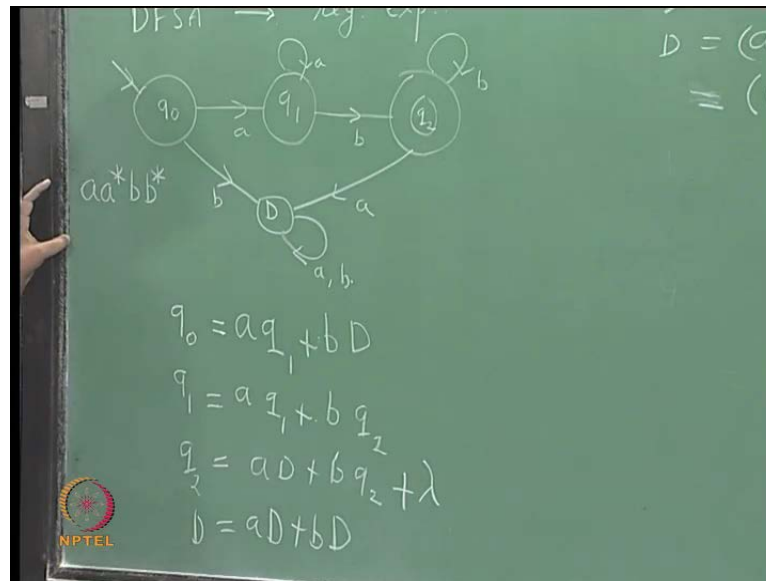 DFSA → reg. exp.
D = (a
≡ (
a
b
q0
q1
q2
a
b
aa*bb*
b
D
a
a, b.
q0 = aq1 + bD
q1 = aq1 + bq2
q2 = aD + bq2 + λ
D = aD + bD
NPTEL